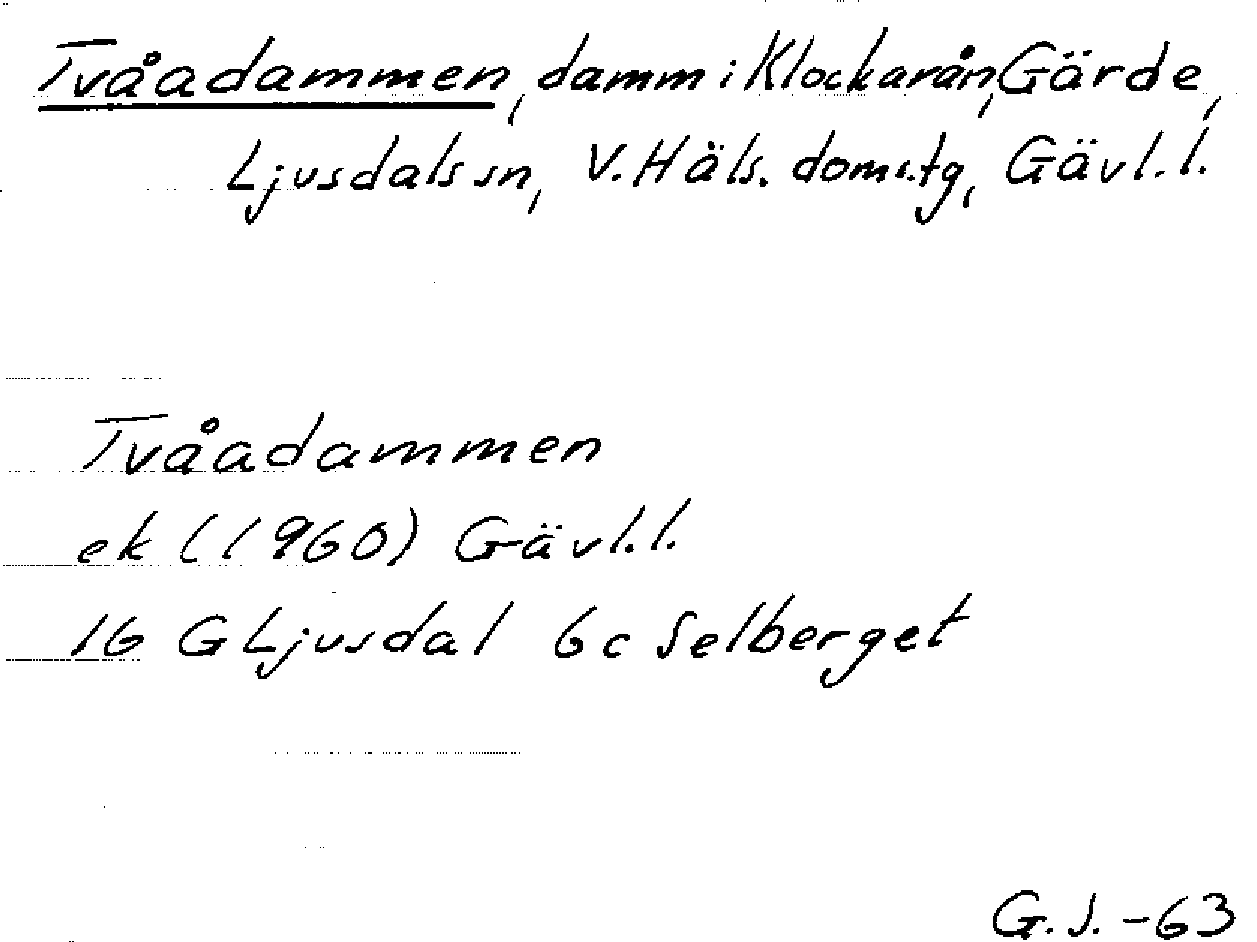 Tvåadammen, damm i Klockarån, Gärde,
Ljusdals sn, V. Häls. doms.tg, Gävl. l.
Tvåadammen
ek (1960) Gävl. l.
16 G Ljusdal 6c Selberget
G.J. -63